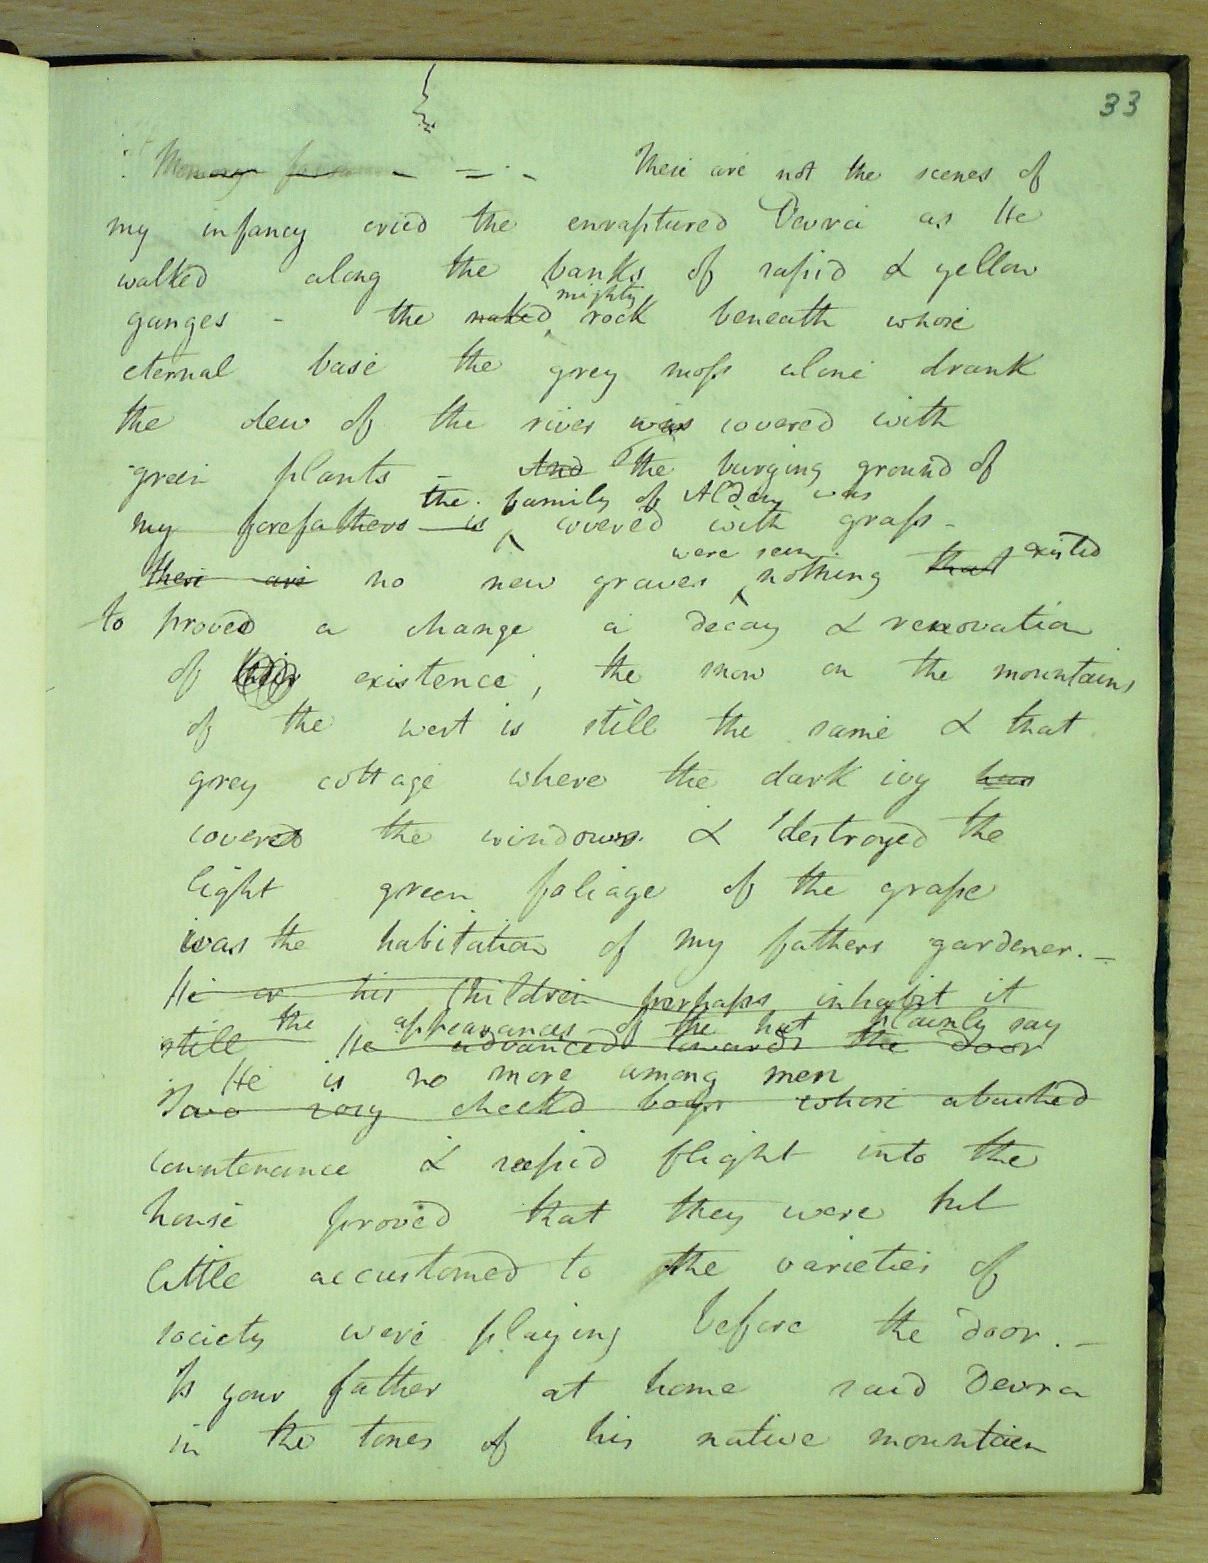 33
These are not the scenes of
my infancy cried the enraptured Devra as He
walked along the banks of rapid & yellow
mighty
ganges - the naked rock beneath whose
eternal base the grey moss alone drank
the dew of the river was covered with
green plants - And the burying ground of
the family of Aldeny was
my forefathers is covered with grass -
were seen exited
there are no new graves nothing that
to proved a change a decay & renovation
of their existence, the snow on the mountains
of the west is still the same & that
grey cottage where the dark ivy has
covered the windows & destroyed the
light green foliage of the grape
was the habitation of my fathers gardener. -
He or his Children perhaps inhabit it
the appearances of the hut plainly say
still He advanced towards the door
He is no more among men
Two rosy cheekd boys whose abashed
countenance & rapid flight into the
house proved that they were but
little accustomed to the varieties of
society were playing before the door. -
Is your father at home said Devra
in the tones of his native mountain